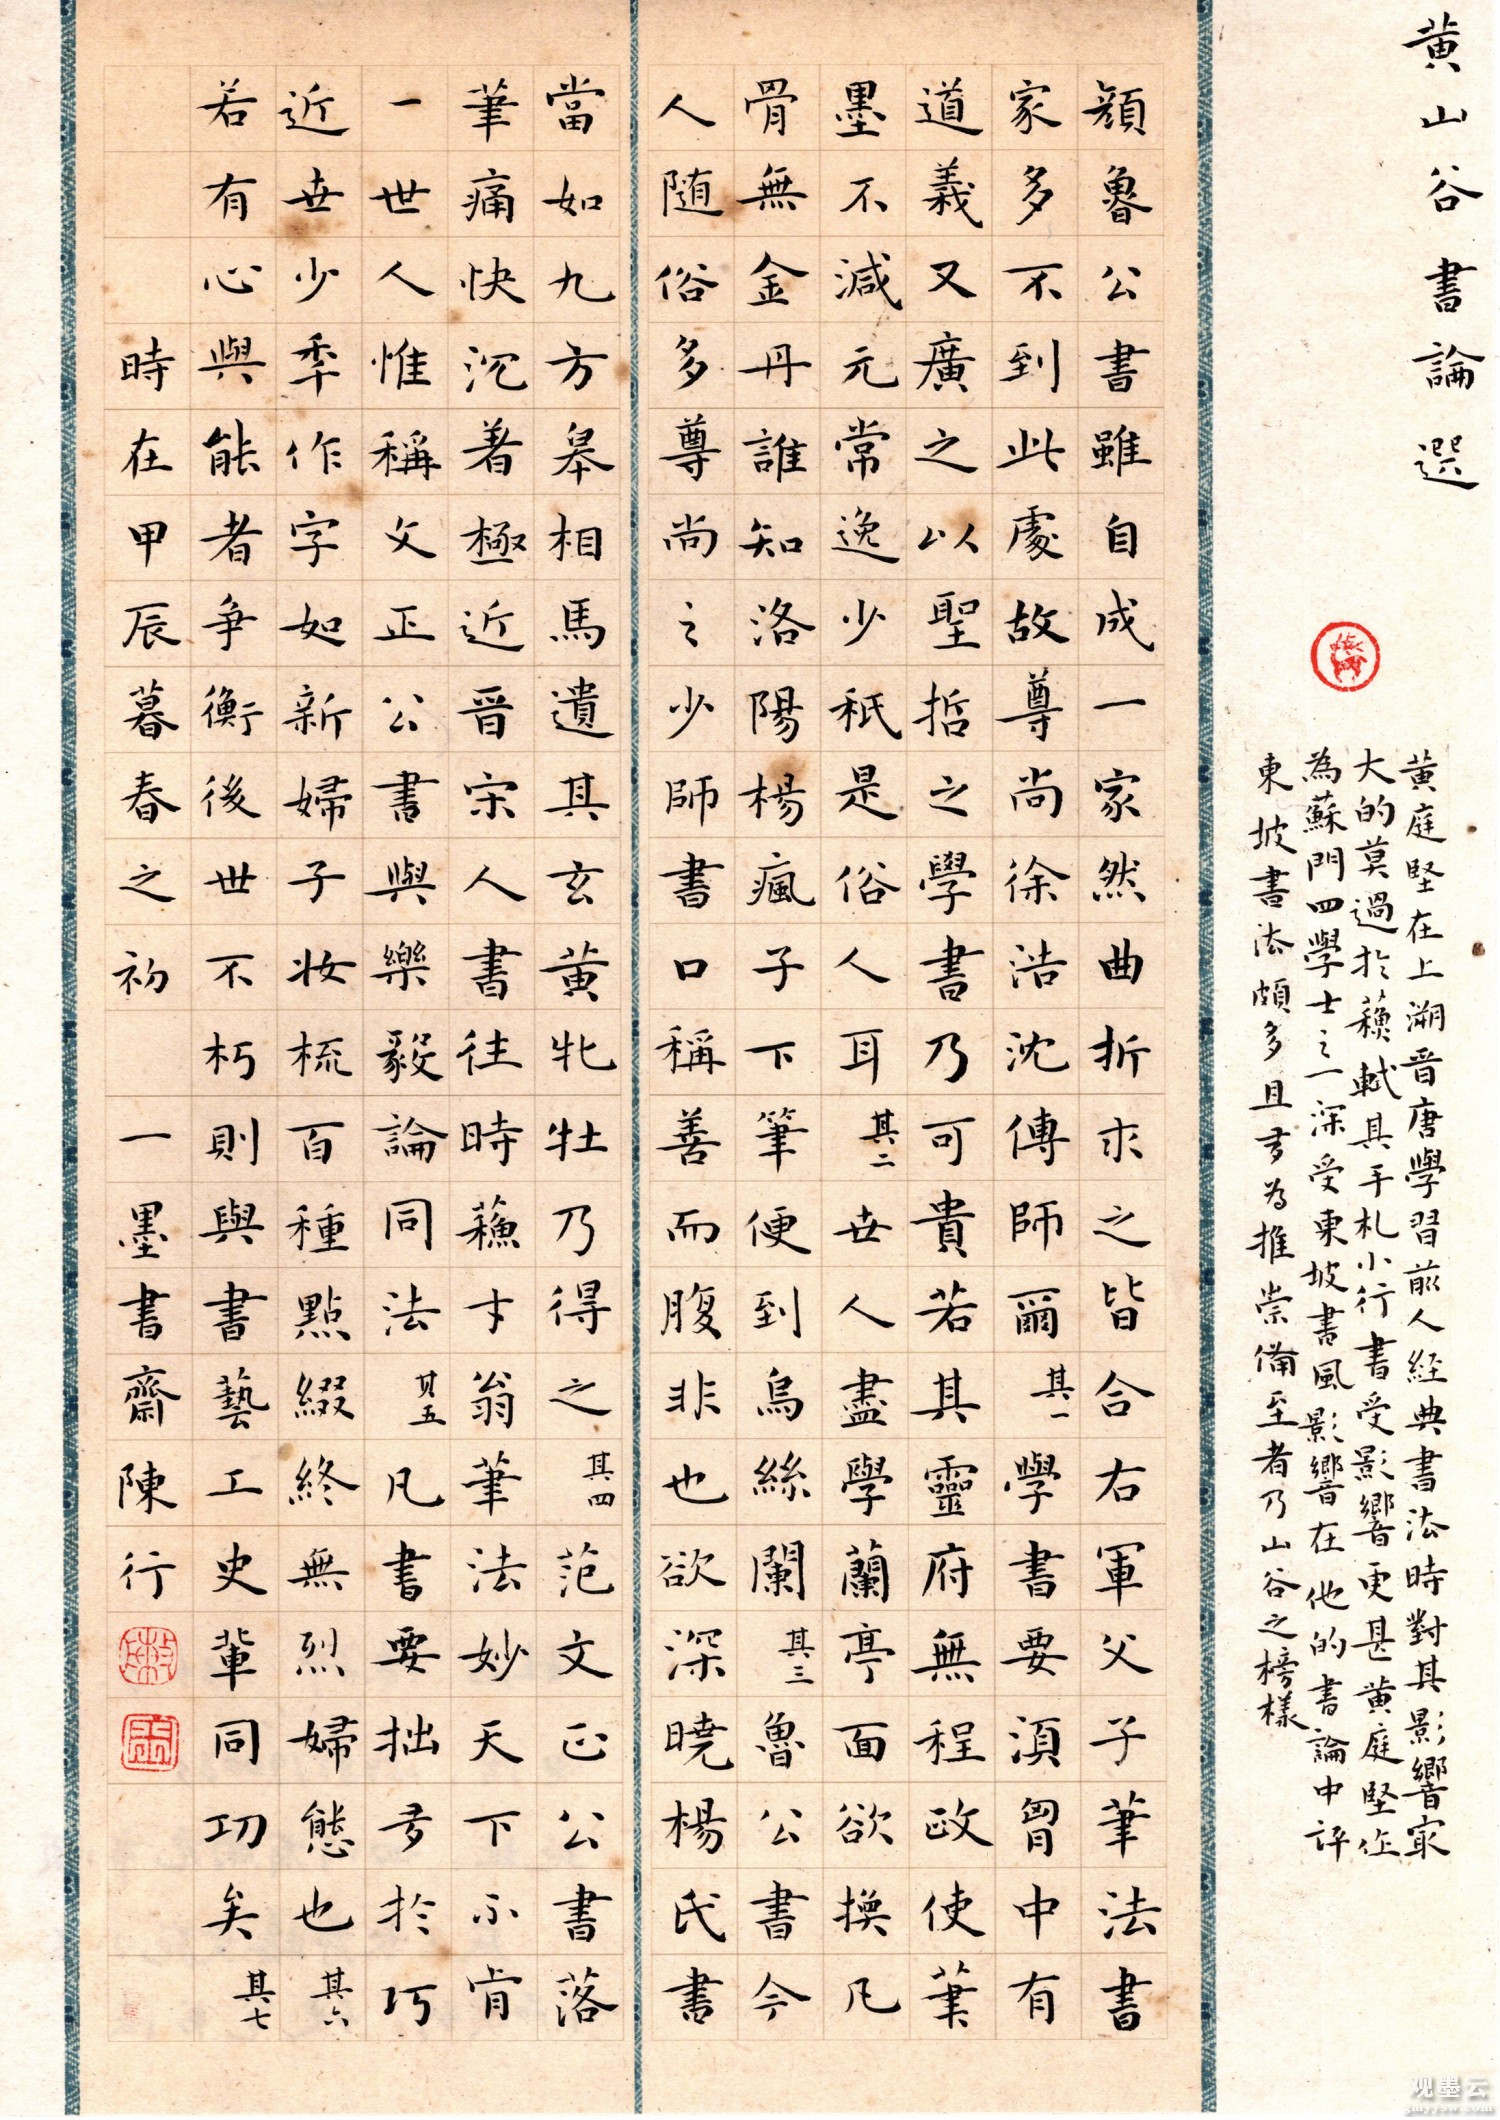 黄山谷書論選
黄庭堅在上溯晋唐學習前人經典書法時對其影響最
大的莫過於蘓軾其手札小行書受影響更甚黄庭堅作
為蘇門四學士之一深受東坡書風影響在他的書論中評
東坡書法頗多且多為推崇備至者乃山谷之榜樣
顔魯公書雖自成一家然曲折求之皆合右軍父子筆法書
家多不到此處故尊尚徐浩沈傳師爾其一學書要須胷中有
道義又廣之以聖哲之學書乃可貴若其靈府無程政使筆
墨不減元常逸少秖是俗人耳其二世人盡學蘭亭面欲換凡
骨無金丹誰知洛陽楊瘋子下筆便到烏絲闌其三魯公書今
人随俗多尊尚之少師書口稱善而腹非也欲深曉楊氏書
當如九方皋相馬遺其玄黄牝牡乃得之其四范文正公書落
筆痛快沉着極近晋宋人書往時蘓才翁筆法妙天下不肯
一世人惟稱文正公書與樂毅論同法其五凡書要拙多於巧
近世少年作字如新婦子妝梳百種點綴終無烈婦態也其六
若有心與能者争衡後世不朽則與書藝工史輩同功矣其七
時在甲辰暮春之初一墨書齋陳行
观墨云